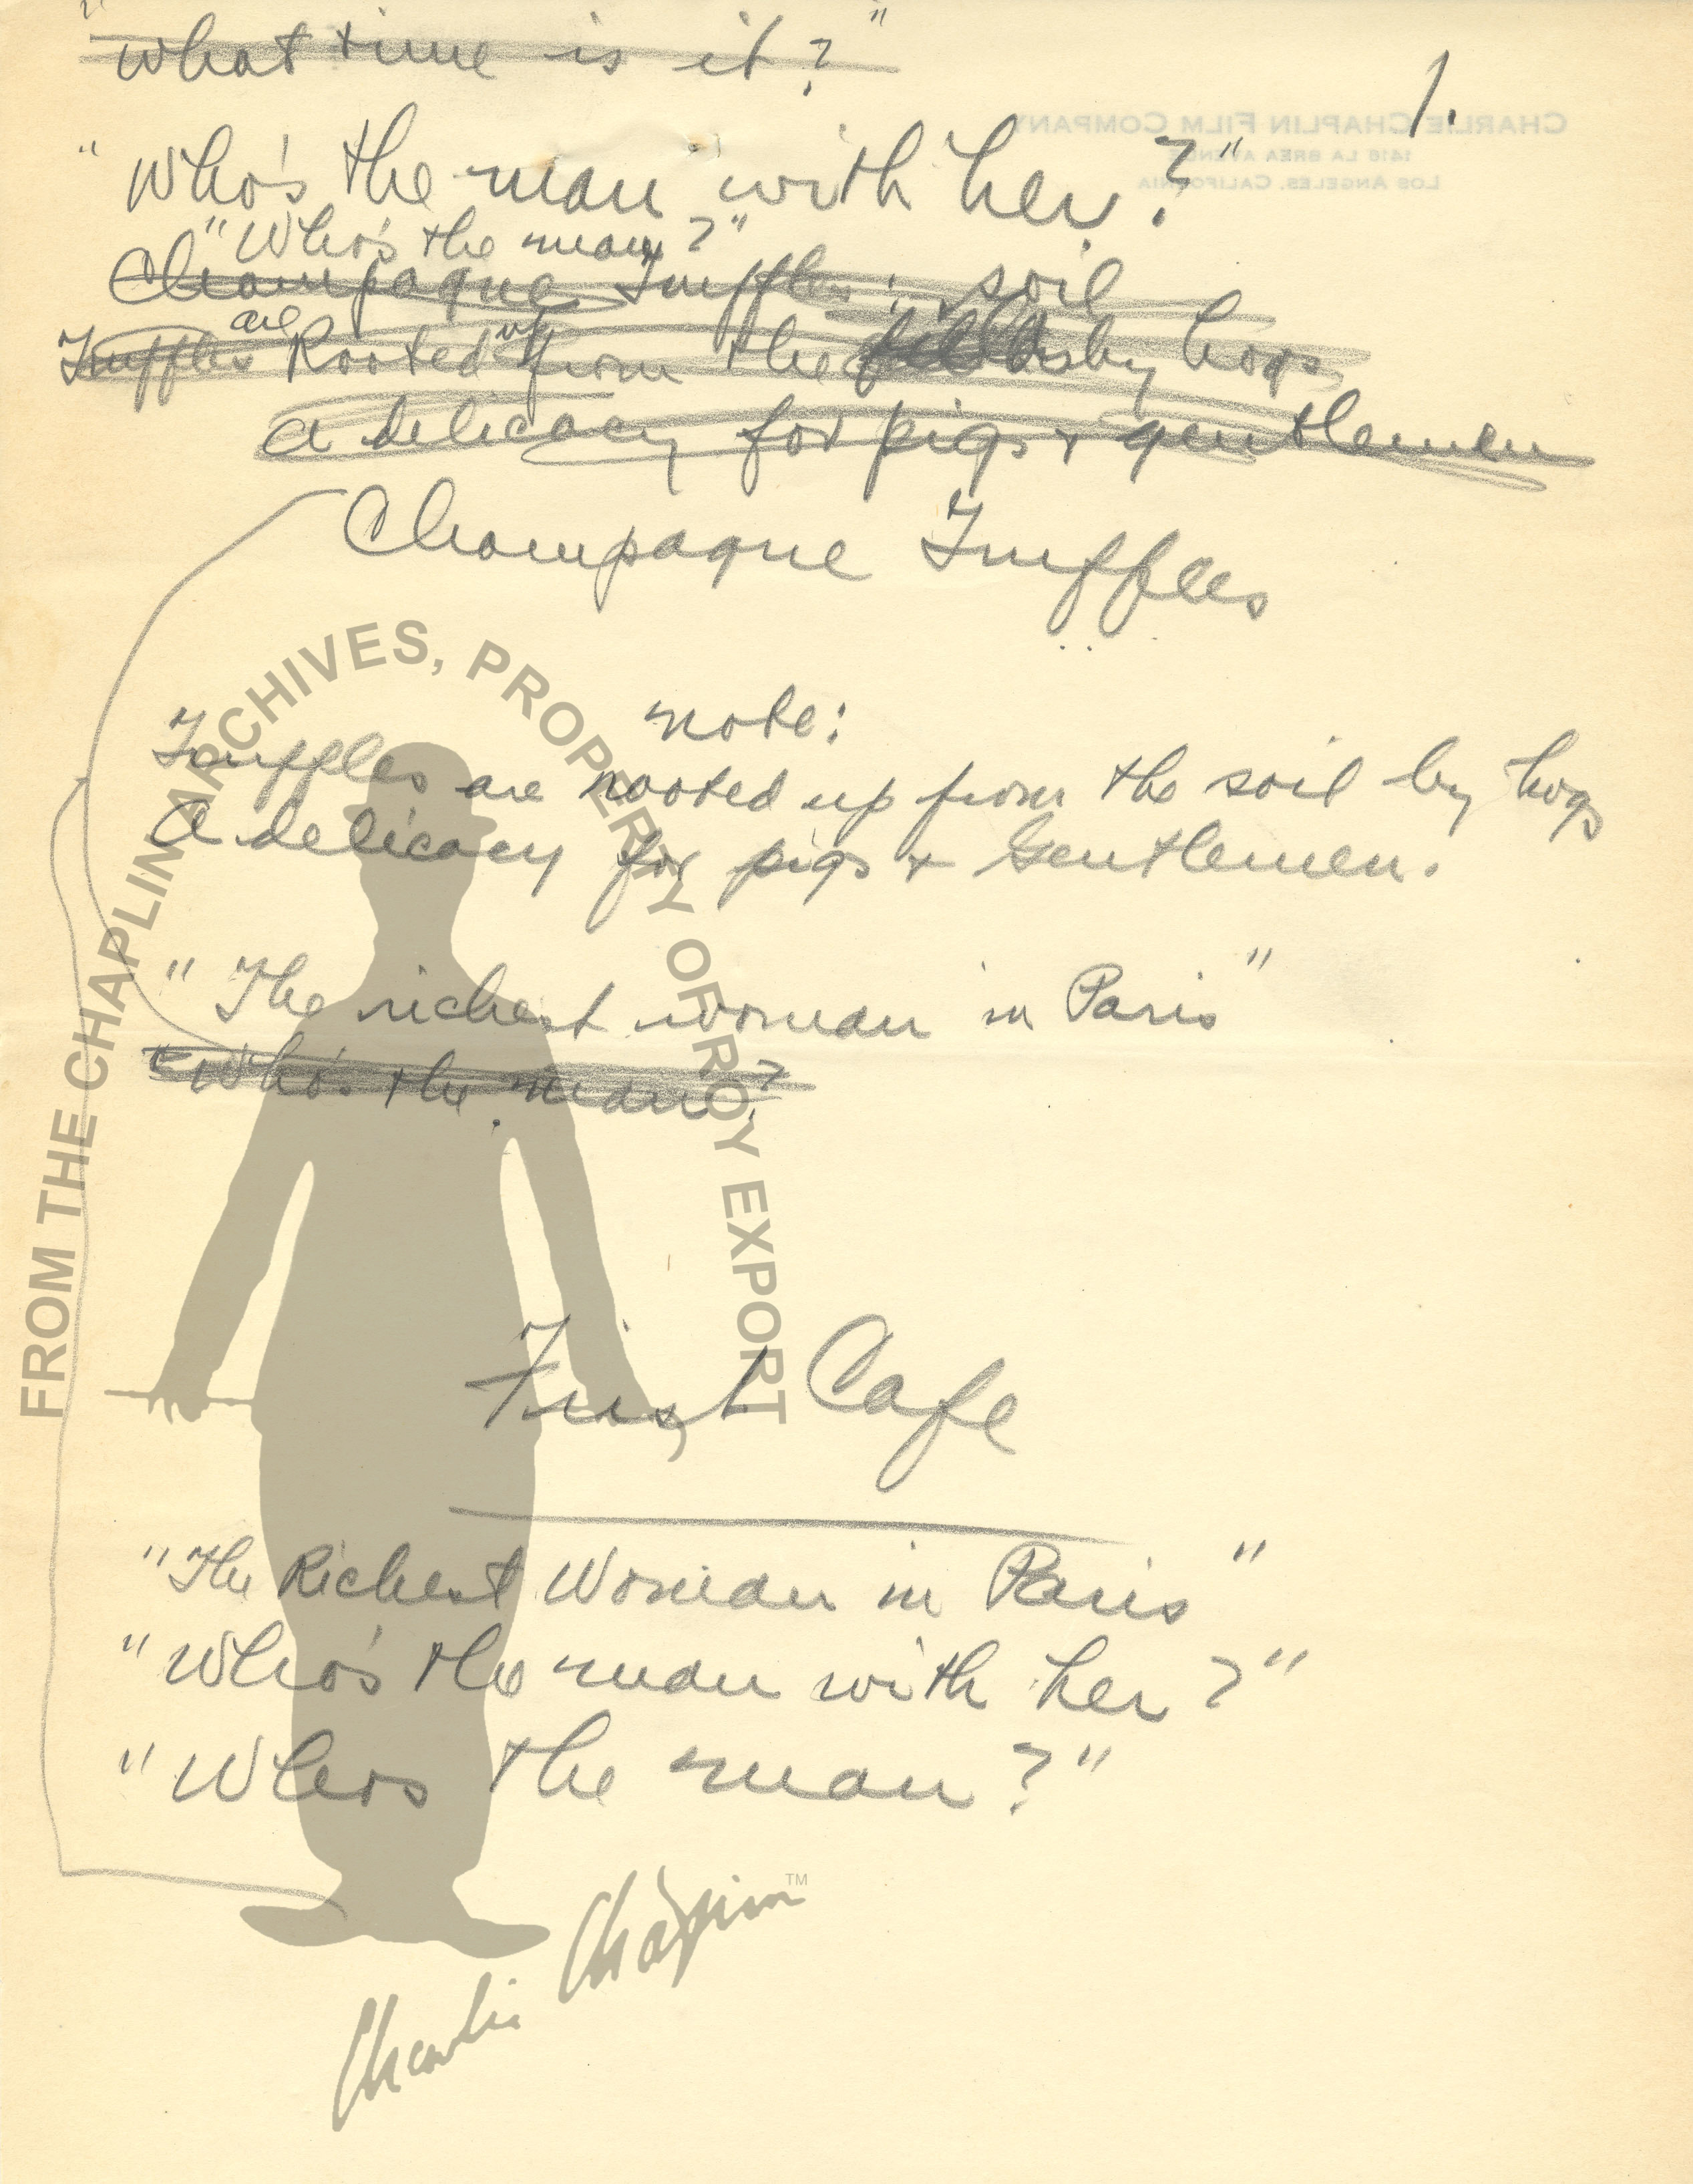 "What time is it?"
1.
CHARLIE CHAPLIN FILM COMPANY
1416 LA BREA AVENUE
LOS ANGELES, CALIFORNIA
"Who's the man with her?"
"Who's the man?"
Champagne Truffles
soil
Truffles are Rooted up from the by hogs
a delicacy for pigs & gentlemen
Champagne Truffles
note:
Truffles are rooted up from the soil by hogs
A delicacy for pigs & Gentlemen.
"The richest woman in Paris"
"Who's the man?
First Cafe
"The Richest Woman in Paris"
"Who's the man with her?"
"Whos the man?"
FROM THE CHAPLIN ARCHIVES, PROPERTY OF ROY EXPORT
Charlie Chaplin TM